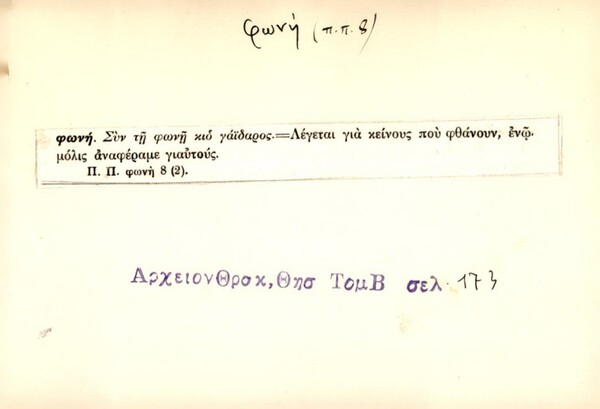 φωνή (π.π. 8)
φωνή. Σὺν τῇ φωνῇ κιὁ γάϊδαρος.=Λέγεται γιὰ κείνους ποὺ φθάνουν, ἐνῷ
μόλις ἀναφέραμε γιαὐτούς.
Π. Π. φωνὴ 8 (2).
ΑρχειονΘρακ,Θησ ΤομΒ σελ. 173